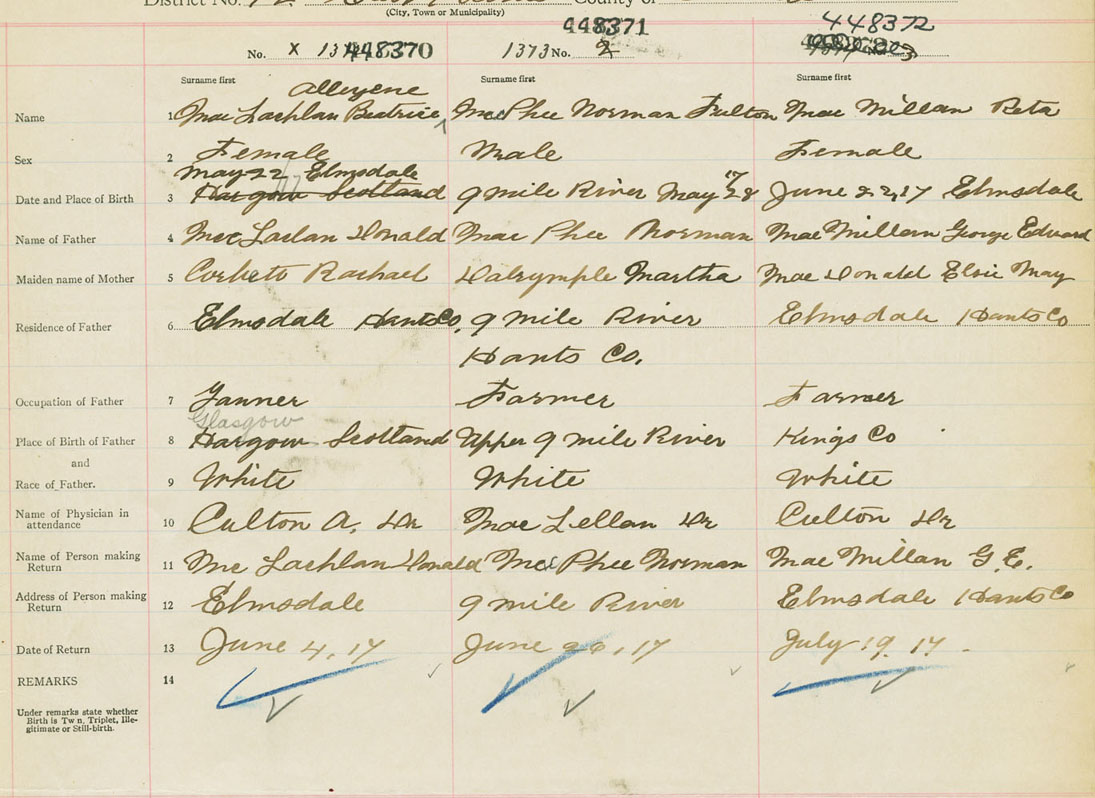 District No. County of
(City, Town or Municipality)
448371 448372
No. X 448370 1373 No. 2 3
Surname first Surname first Surname first
Alleyene
Name 1 MacLachlan Beatrice, MacPhee Norman Fulton MacMillan Reta
Sex 2 Female Male Female
May 22 Elmsdale
17
Date and Place of Birth 3 Hargow Scotland 9 mile River May 28 June 22, 17 Elmsdale
Name of Father 4 MacLaclan Donald MacPhee Norman MacMillan George Edward
Maiden name of Mother 5 Corbett Rachael Dalrymple Martha MacDonald Elsie May
Residence of Father 6 Elmsdale Hants Co, 9 mile River Elmsdale Hants Co
Hants Co.
Occupation of Father 7 Tanner Farmer Farmer
Glasgow
Place of Birth of Father 8 Hargow Scotland Upper 9 mile River Kings Co
and
Race of Father. 9 White White White
Name of Physician in
attendance 10 Culton A, Dr MacLellan Dr Culton Dr
Name of Person making
Return 11 McLachlan Donald MacPhee Norman MacMillan G.E.
Address of Person making
Return 12 Elmsdale 9 mile River Elmsdale Hants Co
Date of Return 13 June 4, 17 June 20, 17 July 19, 17
REMARKS 14
Under remarks state whether
Birth is Twn, Triplet, Ille-
gitimate or Still-birth.